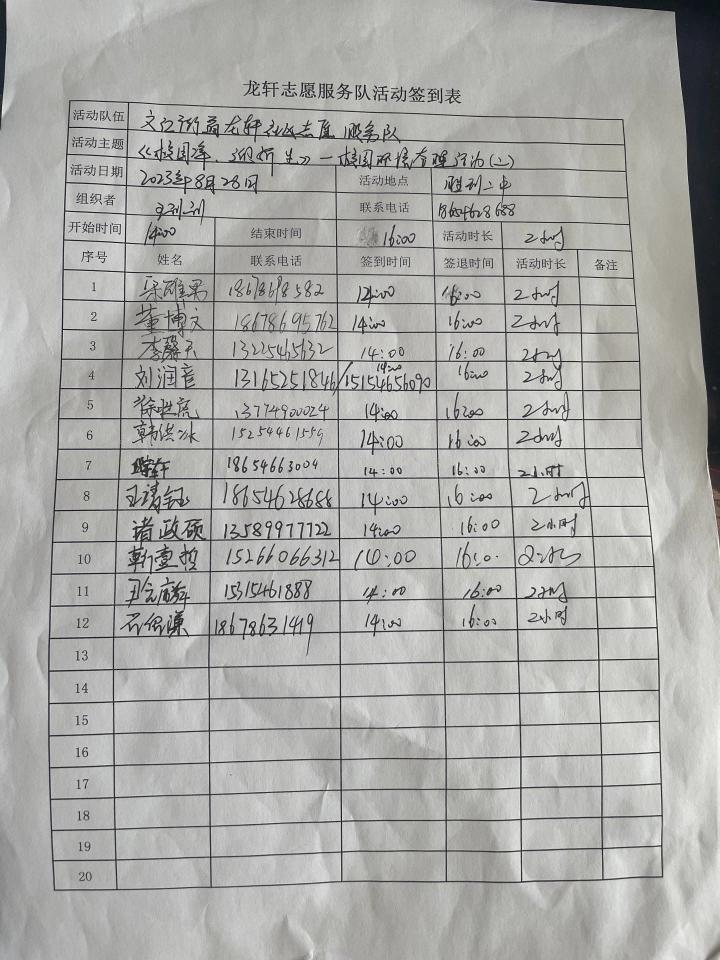 龙轩志愿服务队活动签到表
活动队伍 龙轩 志愿服务队
活动主题 《校园 》一校园环境 活动(二)
活动日期 2023年8月28日 活动地点 胜利二中
组织者 联系电话 18654628688
开始时间 14:00 结束时间 16:00 活动时长 2小时
序号 姓名 联系电话 签到时间 签退时间 活动时长 备注
1 14:00 16:00 2小时
2 董博文 18678695762 14:00 16:00 2小时
3 13225465632 14:00 16:00 2小时
4 刘润音 13165251846/15154656090 14:00 16:00 2小时
5 13774900024 14:00 16:00 2小时
6 韩洪冰 15254461559 14:00 16:00 2小时
7 18654663004 14:00 16:00 2小时
8 18654628688 14:00 16:00 2小时
9 诸政硕 13589977722 14:00 16:00 2小时
10 15266066312 14:00 16:0 2小时
11 15315461888 14:00 16:00 2小时
12 18678631419 14:00 16:00 2小时
13
14
15
16
17
18
19
20